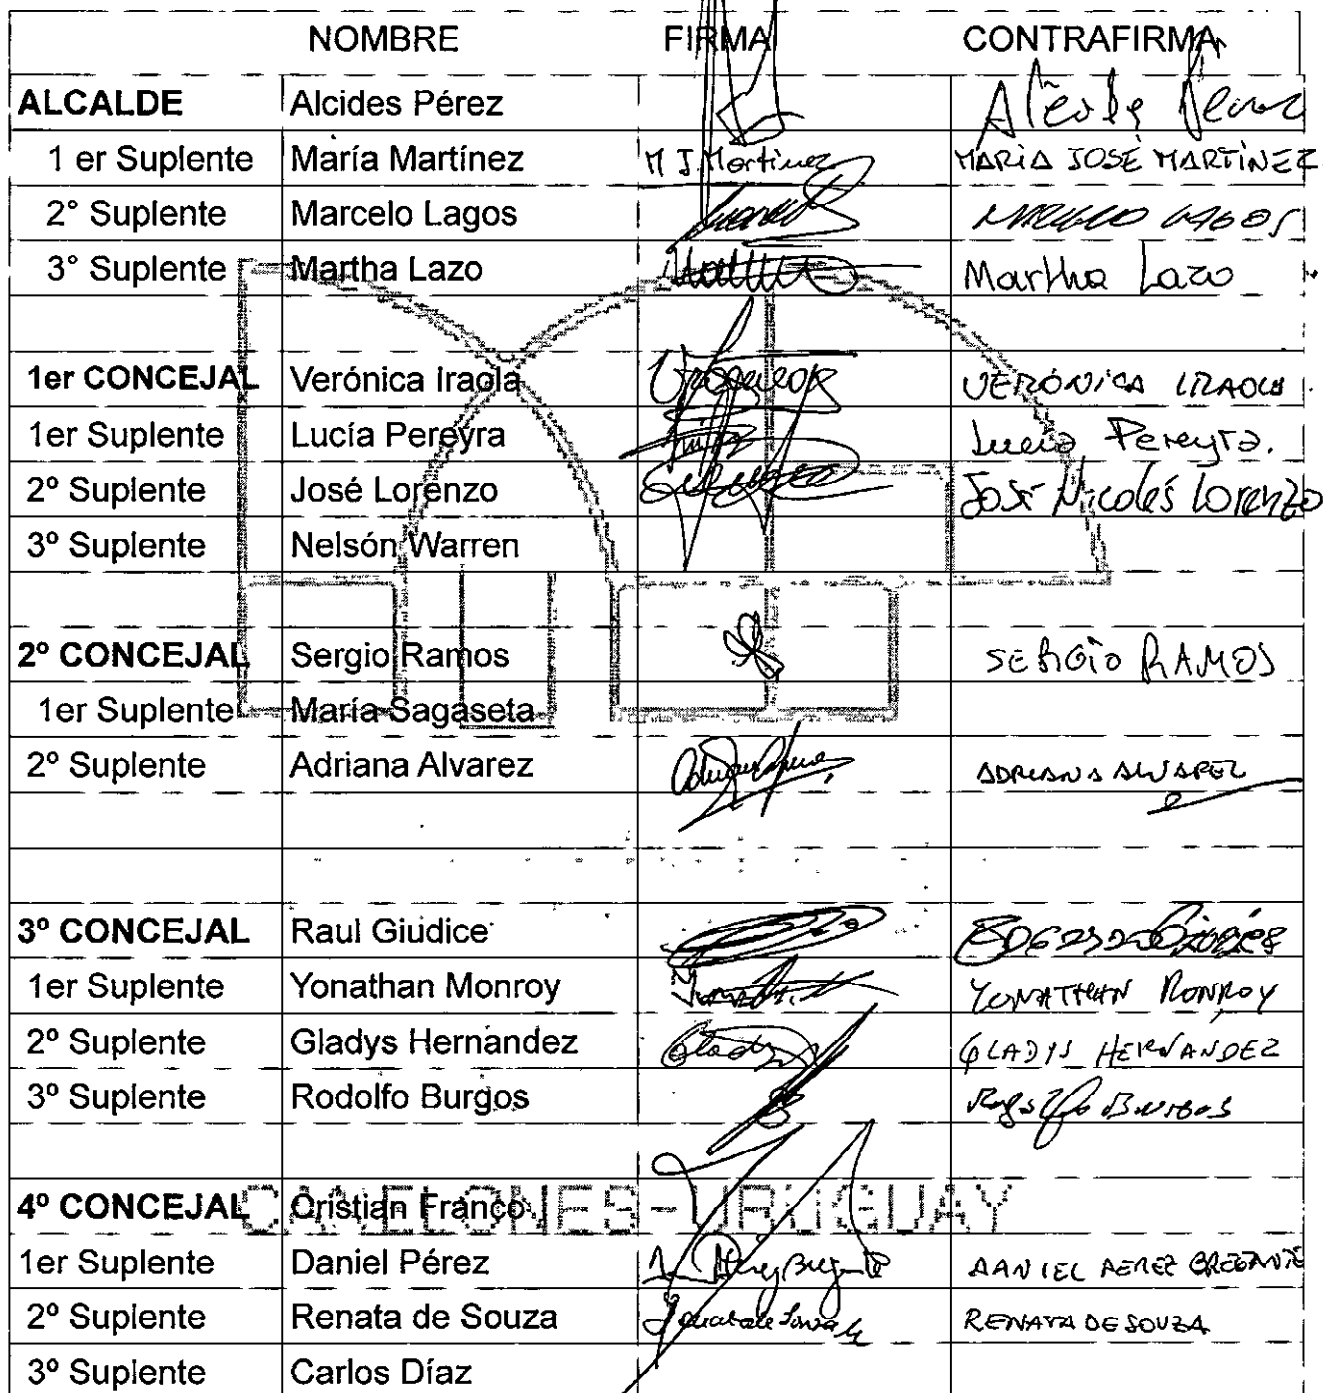 NOMBRE FIRMA CONTRAFIRMA
ALCALDE Alcides Pérez
1 er Suplente María Martínez M J. Martinez MARIA JOSÉ MARTÍNEZ
2° Suplente Marcelo Lagos MARCELO LAGOS
3° Suplente Martha Lazo Martha Lazo
1er CONCEJAL Verónica Iraola VERÓNICA IRAOLA
1er Suplente Lucía Pereyra Lucía Pereyra.
2º Suplente José Lorenzo José Nicolás Lorenzo
3º Suplente Nelsón Warren
2º CONCEJAL Sergio Ramos SERGIO RAMOS
1er Suplente María Sagaseta
2º Suplente Adriana Alvarez ADRIANA ALVAREZ
3º CONCEJAL Raul Giudice
1er Suplente Yonathan Monroy YONATHAN MONROY
2º Suplente Gladys Hernandez Gladys GLADYS HERNANDEZ
3º Suplente Rodolfo Burgos Rodolfo BURGOS
4º CONCEJAL Cristian Franco
CANELONES - URUGUAY
1er Suplente Daniel Pérez DANIEL PEREZ
2º Suplente Renata de Souza RENATA DE SOUZA
3º Suplente Carlos Díaz